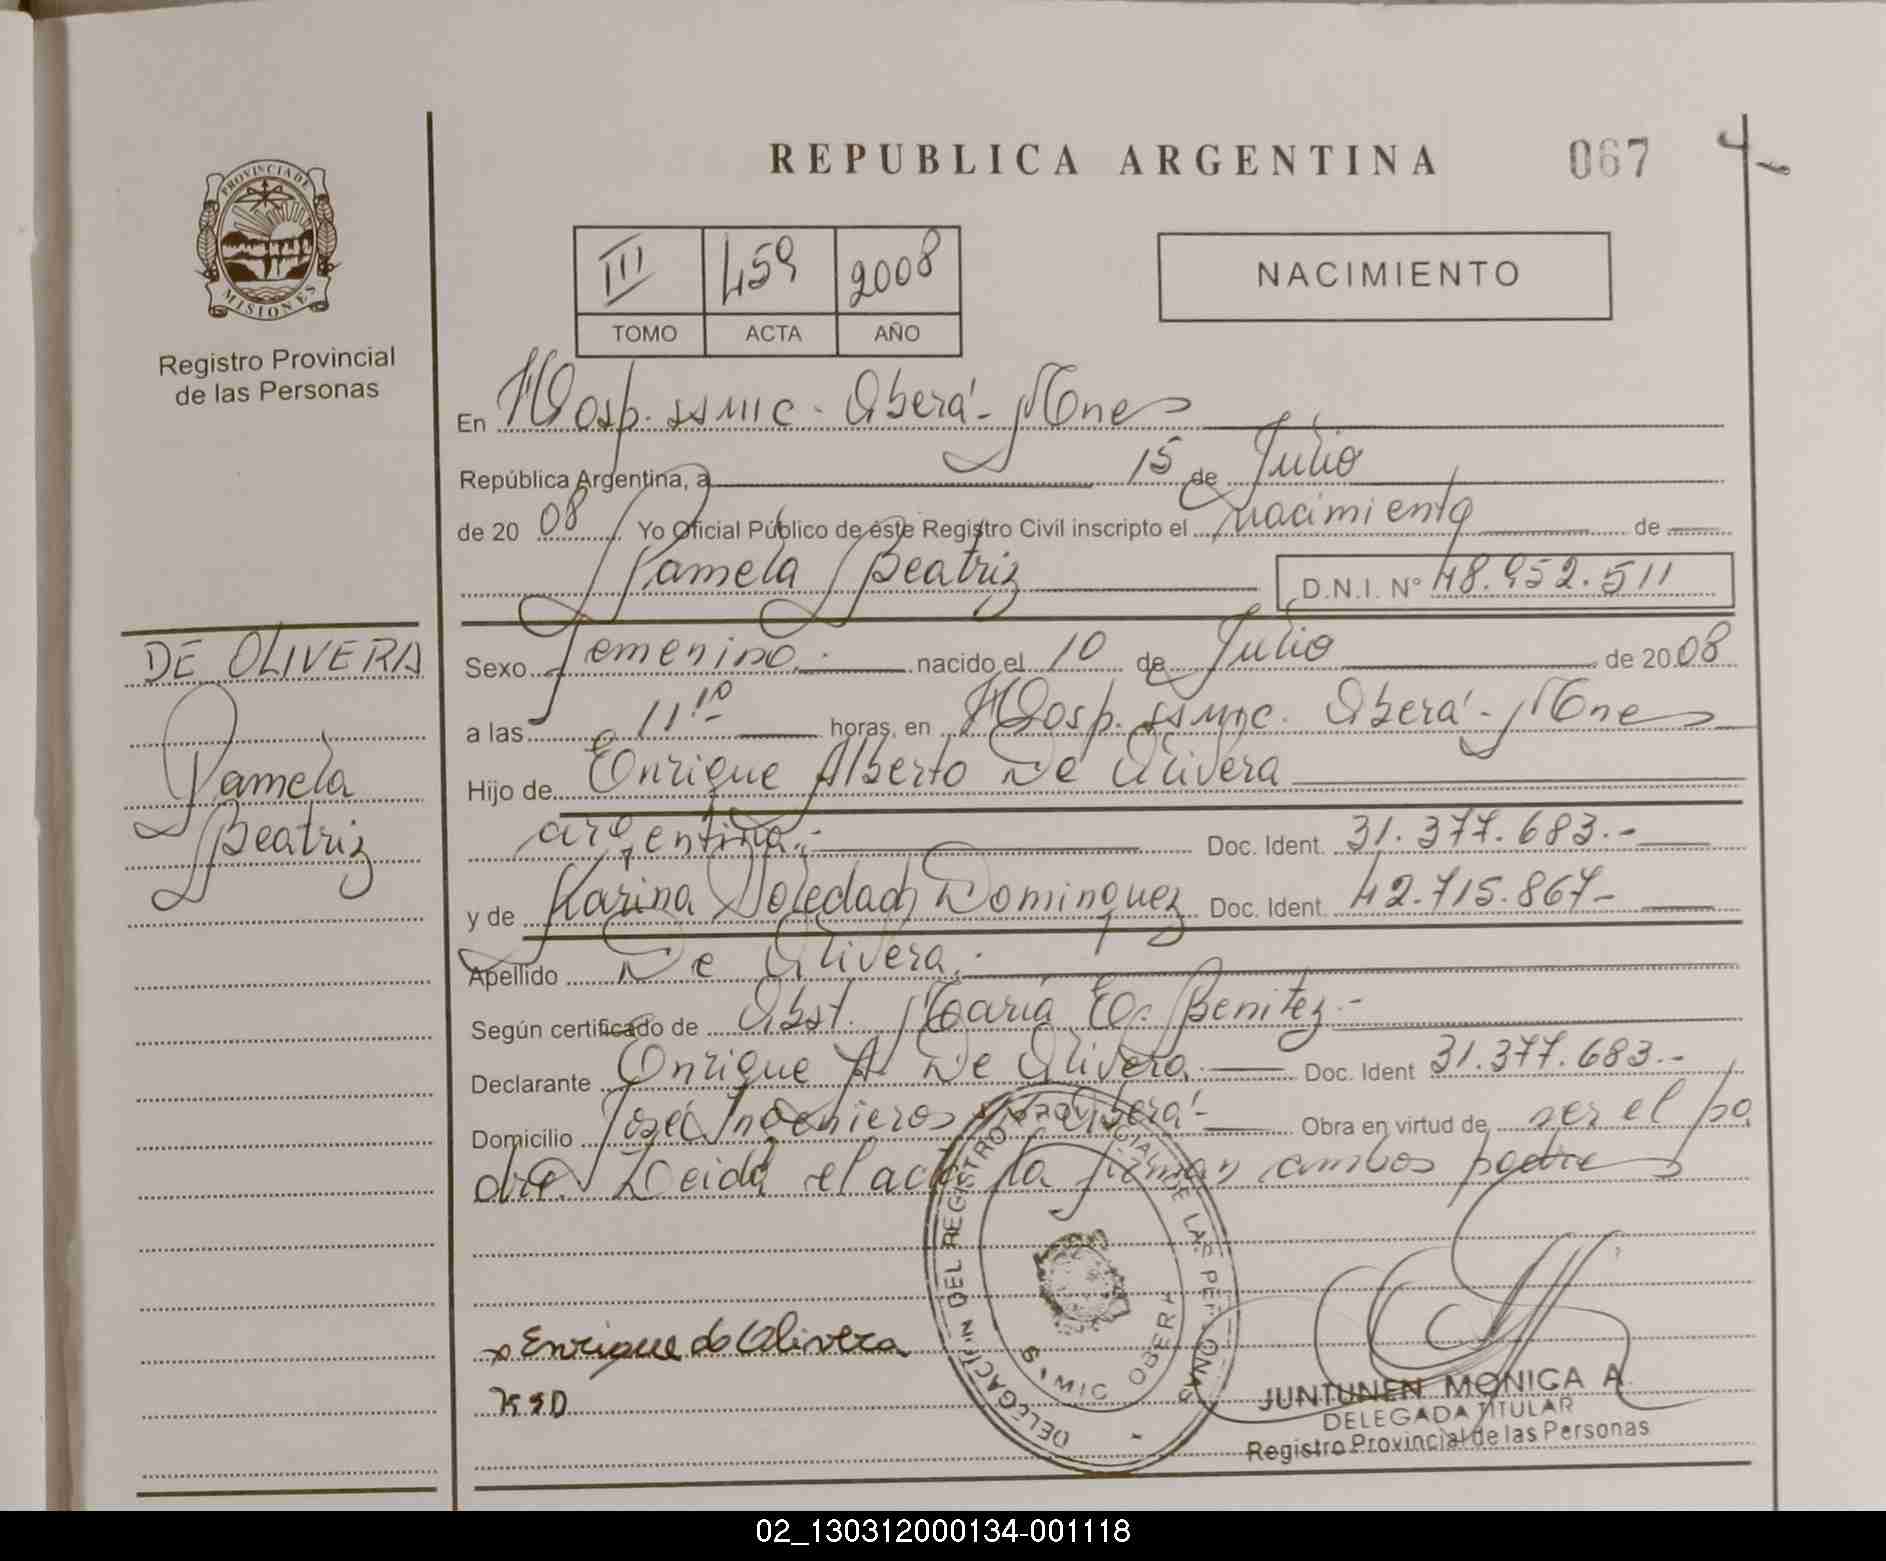 REPUBLICA ARGENTINA
067
PROVINCIA DE
MISIONES
Registro Provincial
de las Personas
III 459 2008
TOMO ACTA AÑO
NACIMIENTO
En Hosp. SSMIC. Oberá - Mnes
República Argentina, a 15 de Julio
de 20 08 Yo Oficial Público de este Registro Civil inscripto el nacimiento de
Pamela Beatriz D.N.I. Nº 48.952.511
DE OLIVERA
Pamela
Beatriz
Sexo femenino.- nacido el 10 de Julio de 20 08
a las 11:10 horas, en Hosp. SSMIC. Oberá - Mnes
Hijo de Enrique Alberto De Olivera
argentina.- Doc. Ident. 31.377.683.-
y de Karina Soledad Dominguez Doc. Ident. 42.715.867-
Apellido De Olivera.-
Según certificado de Obst. María E. Benitez.-
Declarante Enrique A. De Olivera.- Doc. Ident 31.377.683.-
Domicilio José Ingenieros - Oberá- Obra en virtud de ser el pa
dre. Leida el acta la firman ambos padres
DELEGACION DEL REGISTRO PROVINCIAL DE LAS PERSONAS
SAMIC OBERA
Enrique de Olivera
KSD
JUNTUNEN MONICA A.
DELEGADA TITULAR
Registro Provincial de las Personas
02_130312000134-001118